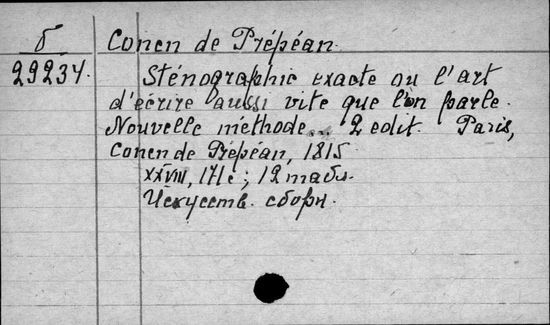 б
29234.
Conen de Prépéan.
Sténographie exacte ou l'art
d'écrire aussi vite que l'on parle.
Nouvelle méthode... 2 edit. Paris,
Conen de Prépéan, 1815
XXVIII, 171 c; 12 табл.
Искусств. сборн.